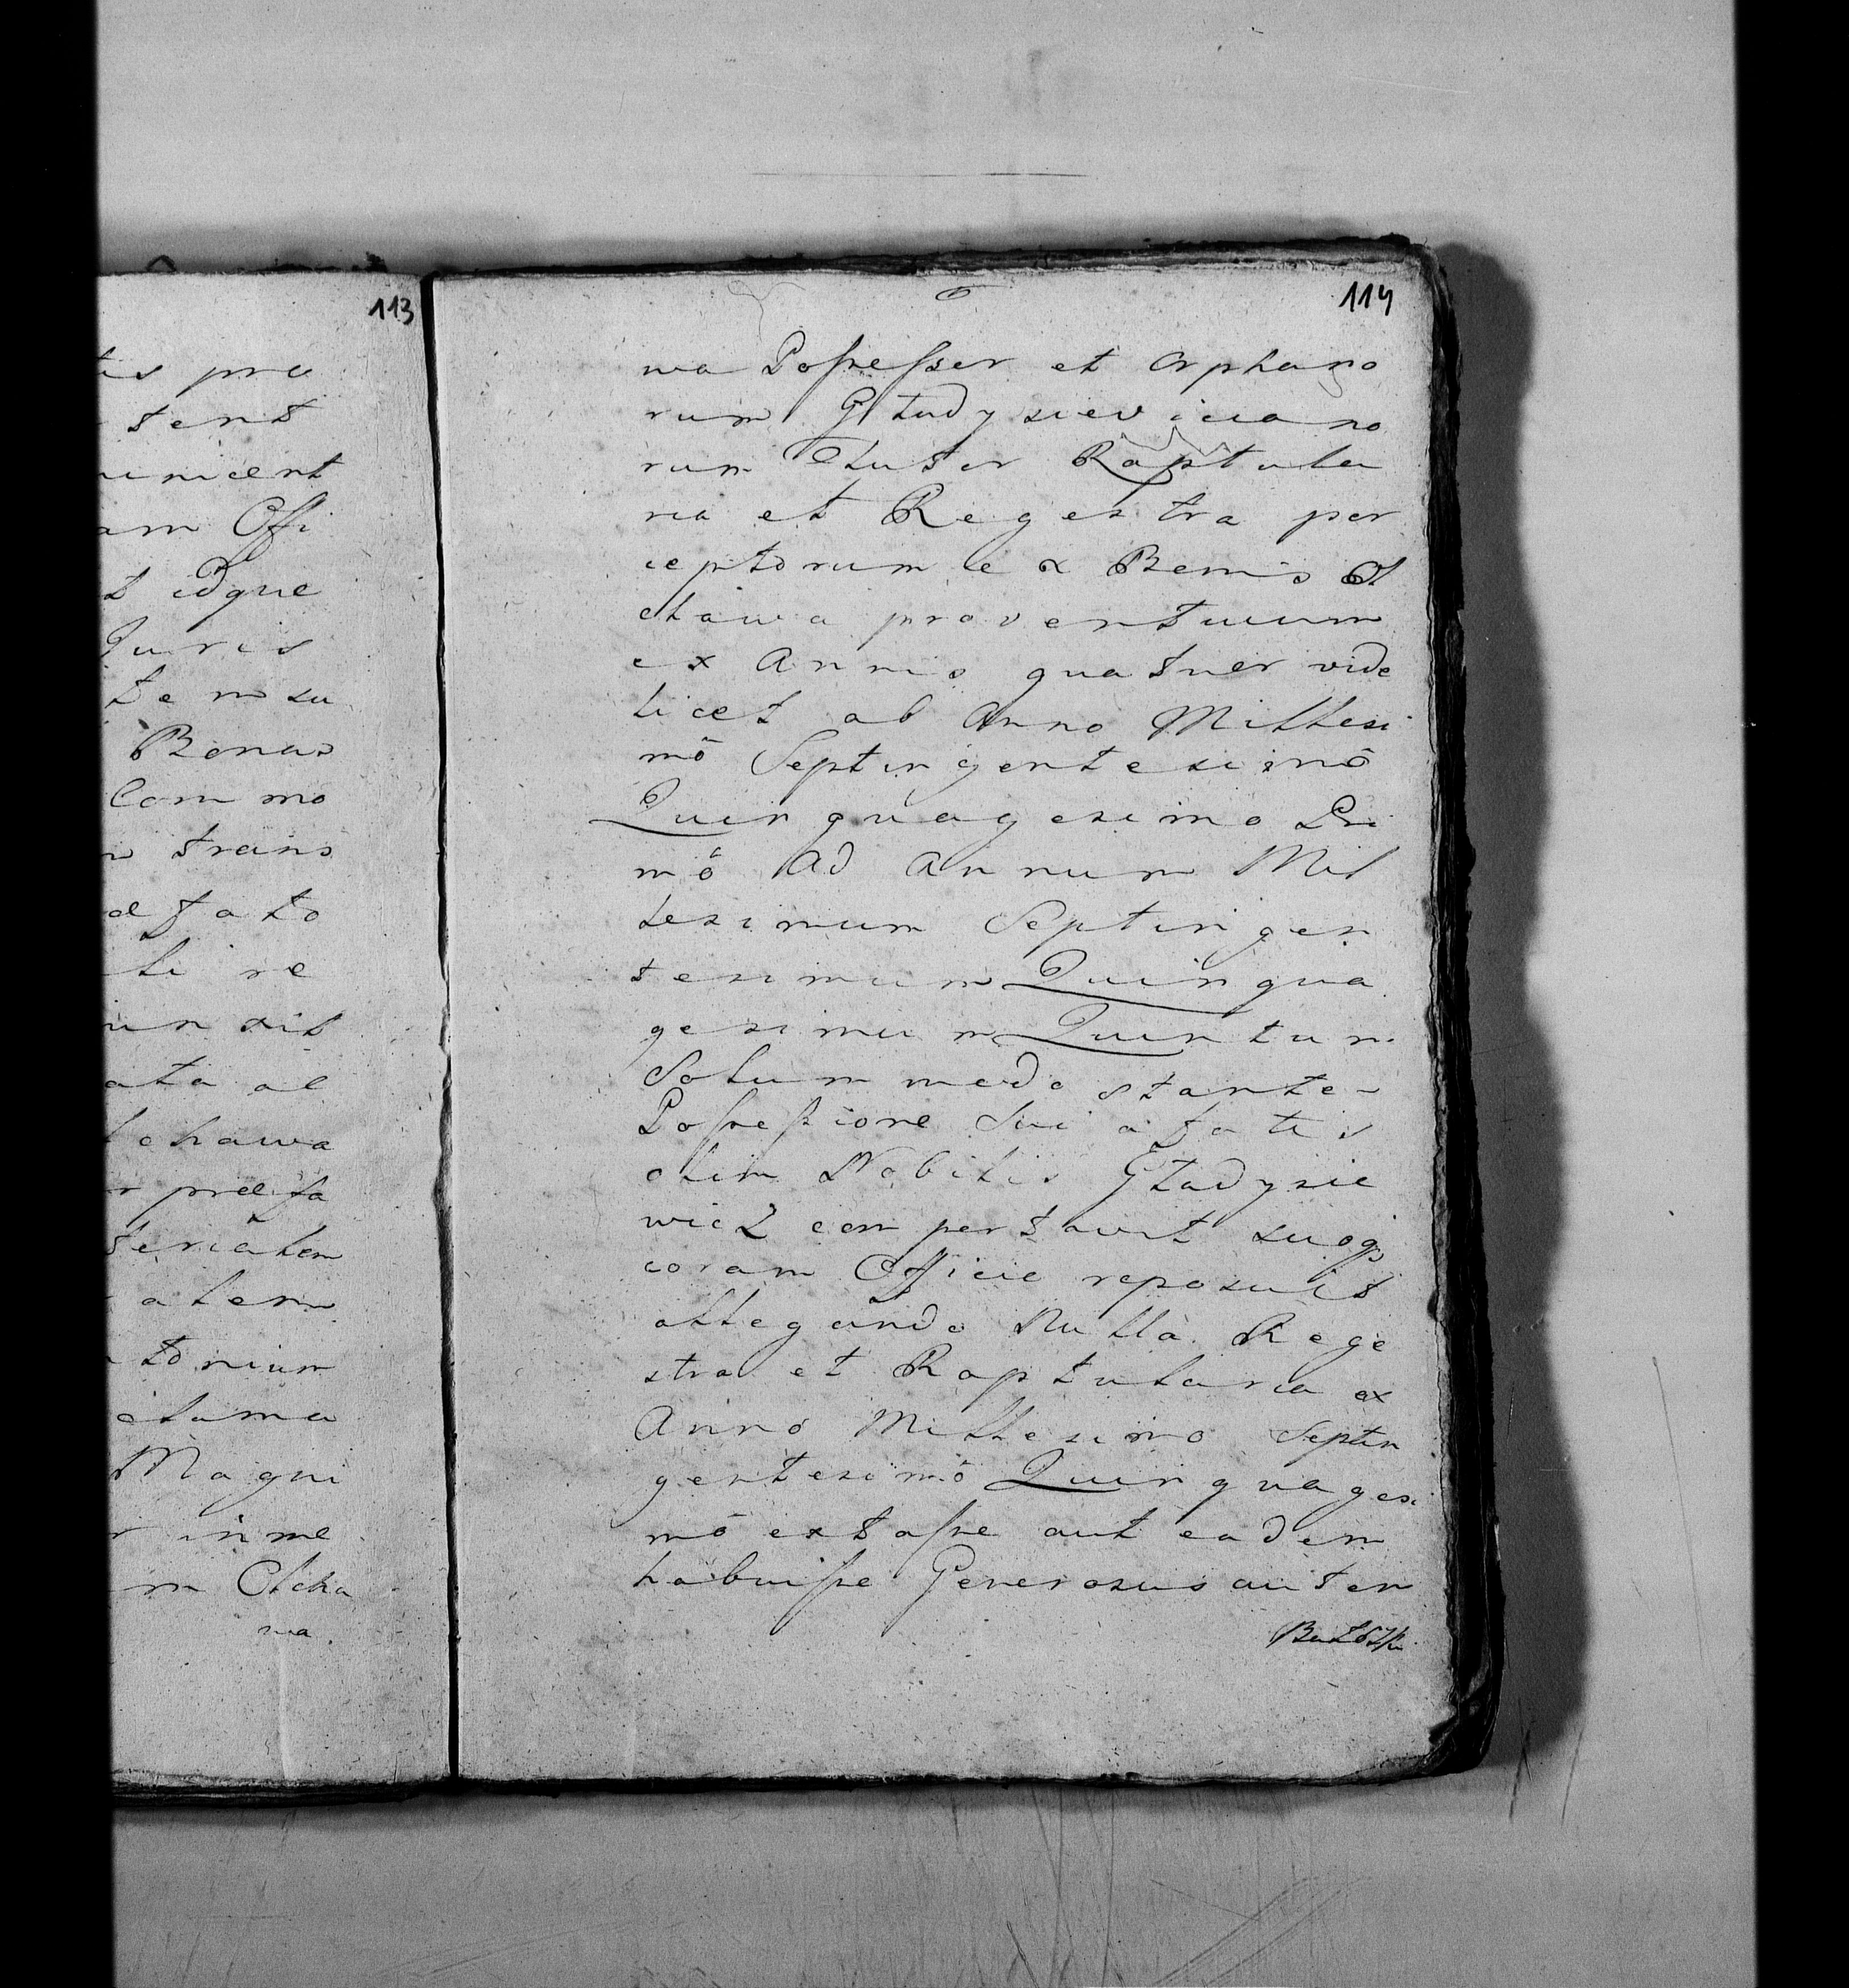 113
tis pra
tent
unicent
am Offi
t idque
Juris
tensu
Bonus
Commo
n trans
æfato
li re
un xit
ata al
lchawa
r præfa
terialem
alem
torium
clama
Magni
r in me
m Olcha
wa.
114
wa Possessor et Orphano
rum Gładysieviciano
rum Tutor Raptula
ria et Regestra per
ceptorum ex Bonis Ol
chawa proventuum
ex Annis quatuor vide
licet ab Anno Millesi
mô Septingentesimô
Quinquagesimo Pri
mô ad Annum Mil
lesimum Septingen
tesimum Quinqua
gesimum Quintum
Solummodo stante
Possessione sui a fatis
olim Nobilis Gładysie
wicz comportavit suoq₃
coram Officio reposuit
allegando Nulla Rege
stra et Raptularia ex
Anno Millesimo Septin
gentesimô Quinquagesi
mô extasse aut eadem
habuisse Generosus autem